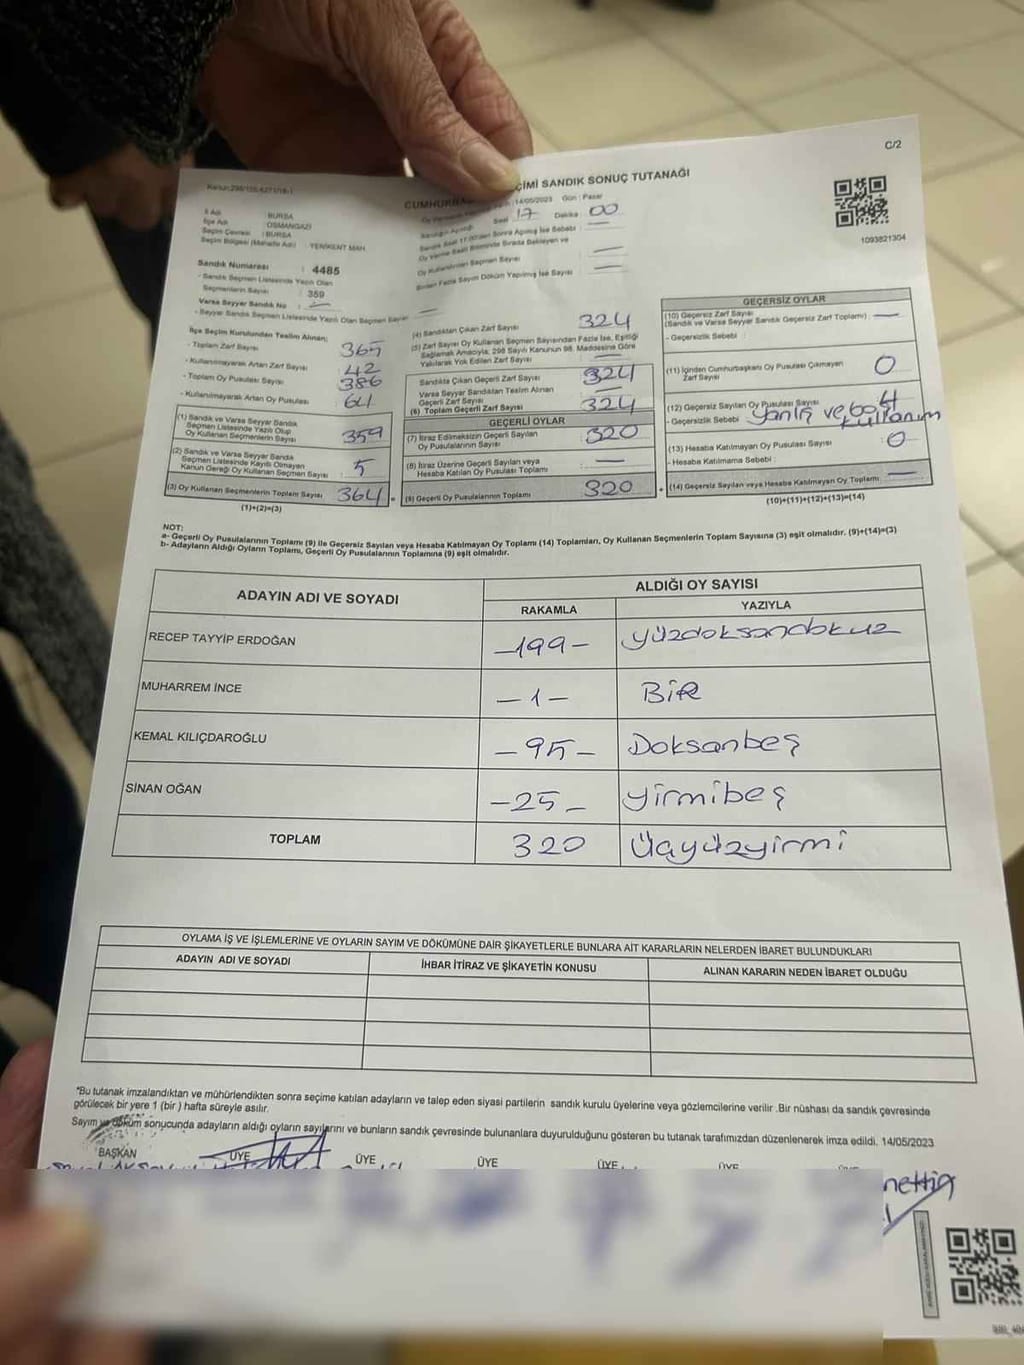 C/2
ÇİMİ SANDIK SONUÇ TUTANAĞI
CUMHUR
14/05/2023 Gün: Pazar
Saat 17 Dakika 00
1093821304
İl Adı : BURSA
İlçe Adı : OSMANGAZİ
Seçim Çevresi : BURSA
Seçim Bölgesi (Mahalle Adı) : YENİKENT MAH.
Sandık Numarası : 4485
- Sandık Seçmen Listesinde Yazılı Olan
Seçmenlerin Sayısı : 359
Varsa Seyyar Sandık No : —
- Seyyar Sandık Seçmen Listesinde Yazılı Olan Seçmen Sayısı —
Sandık Saat 17.00'den Sonra Açılmış İse Sebebi : —
Oy Verme Saati Bitiminde Sırada Bekleyen ve
Oy Kullandırılan Seçmen Sayısı —
Birden Fazla Sayım Döküm Yapılmış İse Sayısı —
İlçe Seçim Kurulundan Teslim Alınan;
- Toplam Zarf Sayısı : 365
- Kullanılmayarak Artan Zarf Sayısı : 42
- Toplam Oy Pusulası Sayısı : 386
- Kullanılmayarak Artan Oy Pusulası : 64
(1) Sandık ve Varsa Seyyar Sandık
Seçmen Listesinde Yazılı Olup
Oy Kullanan Seçmenlerin Sayısı : 359
(2) Sandık ve Varsa Seyyar Sandık
Seçmen Listesinde Kayıtlı Olmayan
Kanun Gereği Oy Kullanan Seçmen Sayısı : 5
(3) Oy Kullanan Seçmenlerin Toplam Sayısı : 364
(1)+(2)=(3)
(4) Sandıktan Çıkan Zarf Sayısı 324
(5) Zarf Sayısı Oy Kullanan Seçmen Sayısından Fazla İse, Eşitliği
Sağlamak Amacıyla, 298 Sayılı Kanunun 98. Maddesine Göre
Yakılarak Yok Edilen Zarf Sayısı —
Sandıkta Çıkan Geçerli Zarf Sayısı : 324
Varsa Seyyar Sandıktan Teslim Alınan
Geçerli Zarf Sayısı —
(6) Toplam Geçerli Zarf Sayısı : 324
GEÇERLİ OYLAR
(7) İtiraz Edilmeksizin Geçerli Sayılan
Oy Pusulalarının Sayısı : 320
(8) İtiraz Üzerine Geçerli Sayılan veya
Hesaba Katılan Oy Pusulası Toplamı : —
(9) Geçerli Oy Pusulalarının Toplamı : 320
=
+
GEÇERSİZ OYLAR
(10) Geçersiz Zarf Sayısı
(Sandık ve Varsa Seyyar Sandık Geçersiz Zarf Toplamı) : —
- Geçersizlik Sebebi :
(11) İçinden Cumhurbaşkanı Oy Pusulası Çıkmayan
Zarf Sayısı : 0
(12) Geçersiz Sayılan Oy Pusulası Sayısı : 4
- Geçersizlik Sebebi : yanlış ve boş kullanım
(13) Hesaba Katılmayan Oy Pusulası Sayısı : 0
- Hesaba Katılmama Sebebi :
(14) Geçersiz Sayılan veya Hesaba Katılmayan Oy Toplamı : —
(10)+(11)+(12)+(13)=(14)
NOT:
a- Geçerli Oy Pusulalarının Toplamı (9) ile Geçersiz Sayılan veya Hesaba Katılmayan Oy Toplamı (14) Toplamları, Oy Kullanan Seçmenlerin Toplam Sayısına (3) eşit olmalıdır. (9)+(14)=(3)
b- Adayların Aldığı Oyların Toplamı, Geçerli Oy Pusulalarının Toplamına (9) eşit olmalıdır.
ADAYIN ADI VE SOYADI
ALDIĞI OY SAYISI
RAKAMLA YAZIYLA
RECEP TAYYİP ERDOĞAN -199- yüzdoksandokuz
MUHARREM İNCE -1- BİR
KEMAL KILIÇDAROĞLU -95- Doksanbeş
SİNAN OĞAN -25- yirmibeş
TOPLAM 320 Üçyüzyirmi
OYLAMA İŞ VE İŞLEMLERİNE VE OYLARIN SAYIM VE DÖKÜMÜNE DAİR ŞİKAYETLERLE BUNLARA AİT KARARLARIN NELERDEN İBARET BULUNDUKLARI
ADAYIN ADI VE SOYADI İHBAR İTİRAZ VE ŞİKAYETİN KONUSU ALINAN KARARIN NEDEN İBARET OLDUĞU
*Bu tutanak imzalandıktan ve mühürlendikten sonra seçime katılan adayların ve talep eden siyasi partilerin sandık kurulu üyelerine veya gözlemcilerine verilir .Bir nüshası da sandık çevresinde
görülecek bir yere 1 (bir ) hafta süreyle asılır.
Sayım ve döküm sonucunda adayların aldığı oyların sayılarını ve bunların sandık çevresinde bulunanlara duyurulduğunu gösteren bu tutanak tarafımızdan düzenlenerek imza edildi. 14/05/2023
BAŞKAN ÜYE ÜYE ÜYE ÜYE ÜYE